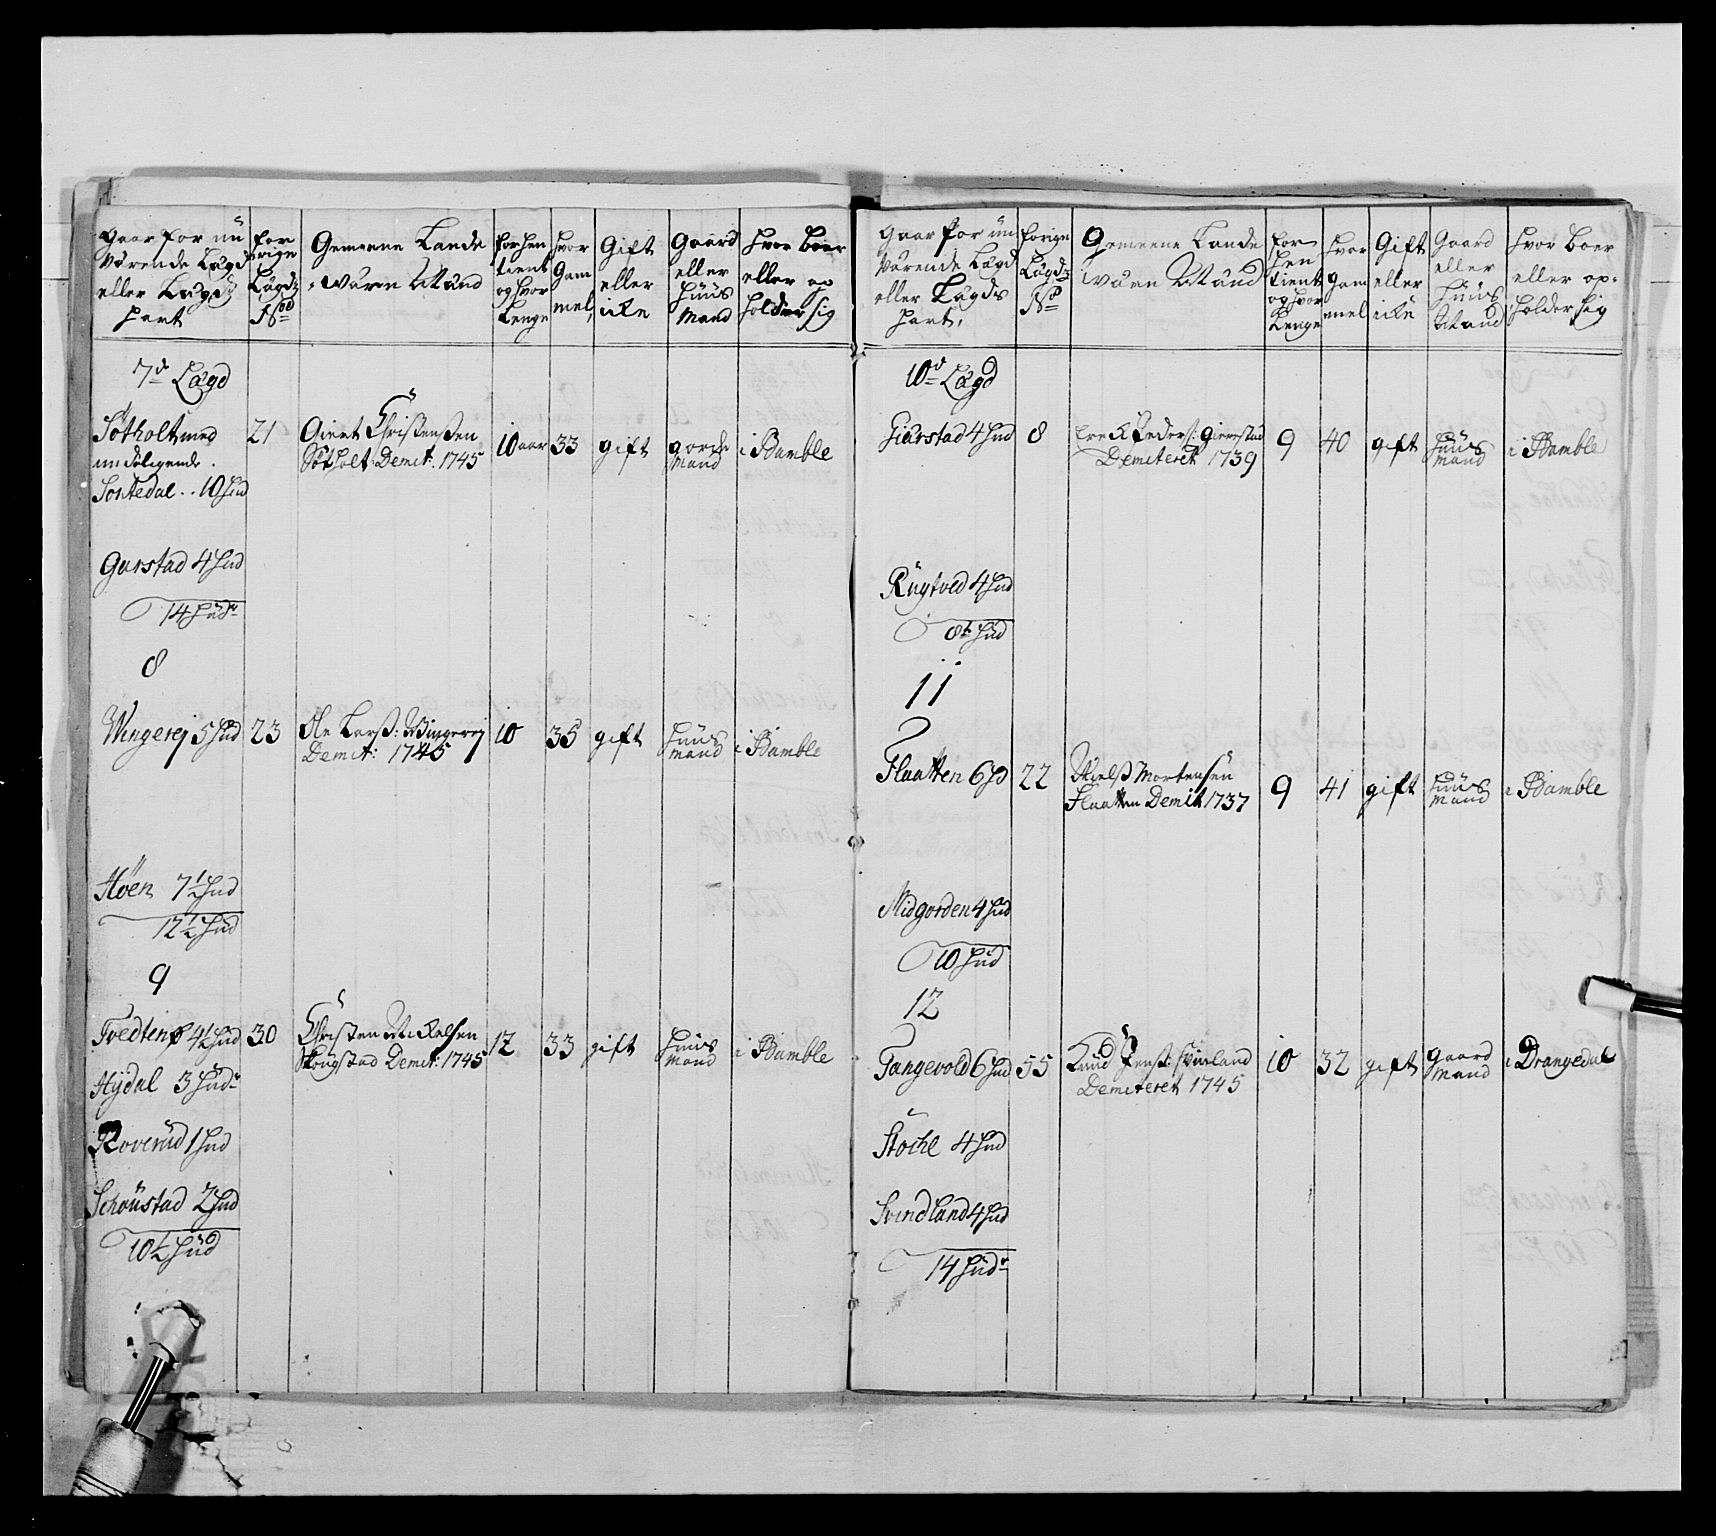 Gaar for nu
värende Lægd
eller Lægdz
part
for
rige
Lægdz
No
Gemeene Lande
wärn Mand
forhen
tient
og hvor
Lenge
hvor
gam
mel,
Gift
eller
icke
Gaard
eller
Huus
Mand
hvor boer
eller op
holder sig
7d Lægd
Sotholt med
underligende
Sortedal .. 10 Hud
21
Giert Christensen
Sotholt Demit: 1745
10 aar
33
gift
gorde
mand
i Bamble
Garstad 4 Hud
14 Hudr
8
Wingerej 5 Hud
23
Ole Larss: Wingerej
Demit: 1745
10
35
gift
Huus
mand
i Bamble
Höen 7½ Hud
12½ Hud
9
Tvedten 4½ Hud
30
Christen Mickelsen
Skougstad Demit: 1745
12
33
gift
Huus
mand
i Bamble
Hydal 3 Hudr
Roverud 1 Hud
Schoustad 2 Hud
10½ Hud
Gaar for nu
värende Lægd
eller Lægds
part,
forige
Lægdz
No
Gemeene Lande
wärn Mand
for
hen
tient
og hvor
Lenge
hvor
gam
mel
Gift
eller
icke
Gaard
eller
Huus
Mand
hvor boer
eller op-
holder sig
10d Lægd
Giärstad 4 Hud
8
Peders: Gierestad
Demiteret 1739
9
40
gift
Huus
mand
i Bamble
Rugtved 4 Hud
8 Hud
11
Flaatten 6 H
22
Nielss Mortensen
Flaatten Demit 1737
9
41
gift
Huus
mand
i Bamble
Midgorden 4 Hud
10 Hud
12
Tangevold 6 Hud
55
Knud Jenss: Svinland
Demiteret 1745
10
32
gift
gaard
mand
i Drangedal
Stoche 4 Hud
Svindland 4 Hud
14 Hudr